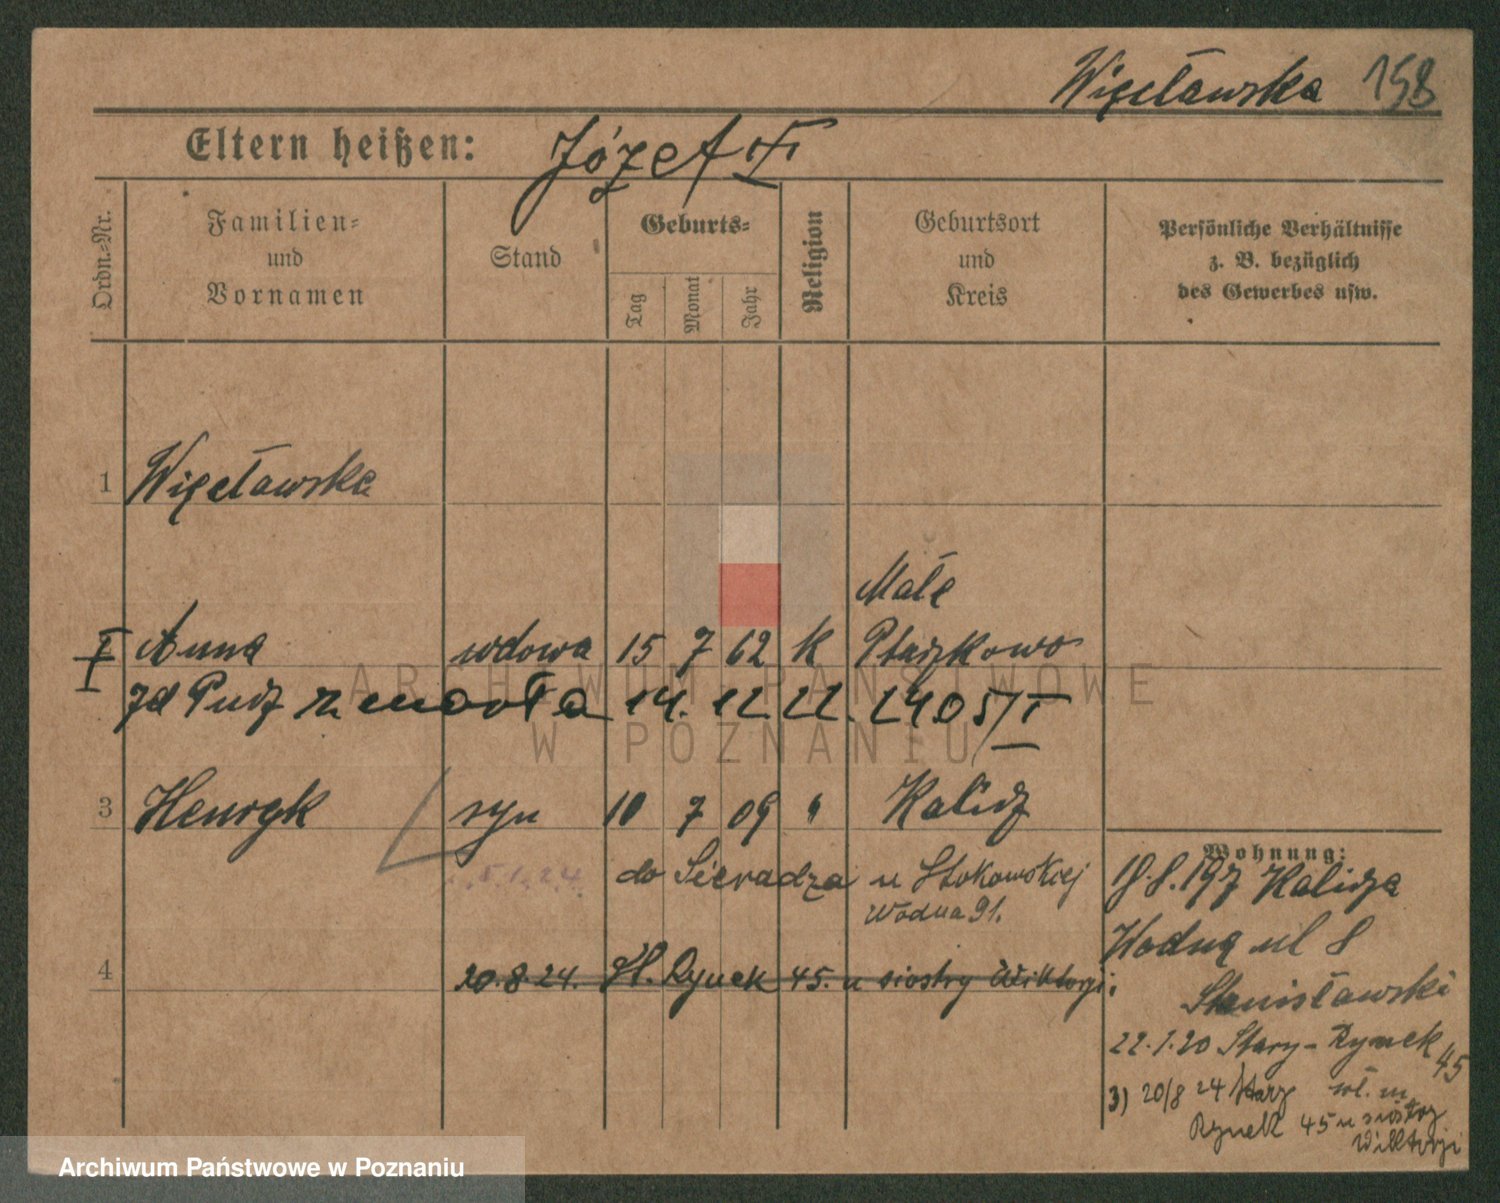 Więcławska 158
Eltern heißen: Józef
Ordn.-Nr.
Familien-
und
Vornamen
Stand
Geburts-
Tag
Monat
Jahr
Religion
Geburtsort
und
Kreis
Persönliche Verhältnisse
z. B. bezüglich
des Gewerbes usw.
1 Więcławska
Małe
I Anna wdowa 15 7 62 k Ptaszkowo
zd Pudz zmarła 14. 12. 22. 2405/I
3 Henryk syn 10 7 09 " Kalisz
5.1.24 do Sieradza u Stokowskiej
Wodna 91.
4 20.8.24. Rynek 45. u siostry Wiktorji.
Wohnung:
Kalisza
Wodna ul 8
Stanisławski
22.1.20 Stary-Rynek 45
3) 20/8 24 Stary
Rynek 45 u siostry
Wiktorji
ARCHIWUM PAŃSTWOWE
W POZNANIU
Archiwum Państwowe w Poznaniu